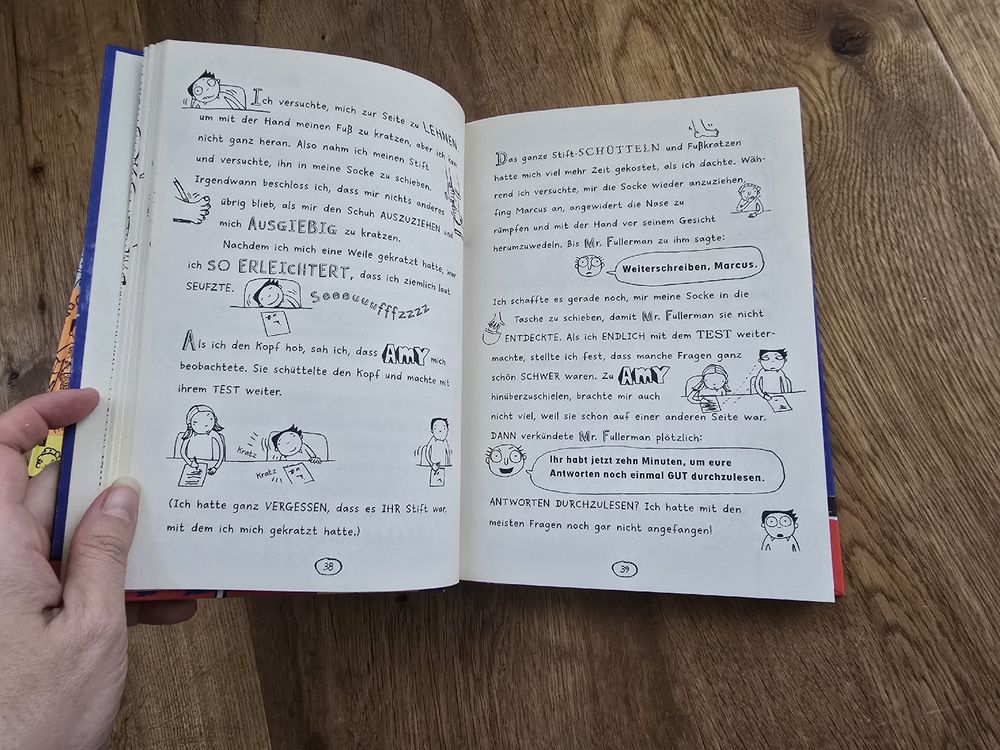 Ich versuchte, mich zur Seite zu LEHNEN,
um mit der Hand meinen Fuß zu kratzen, aber ich kam
nicht ganz heran. Also nahm ich meinen Stift
und versuchte, ihn in meine Socke zu schieben.
Irgendwann beschloss ich, dass mir nichts anderes
übrig blieb, als mir den Schuh AUSZUZIEHEN und
mich AUSGIEBIG zu kratzen.
Nachdem ich mich eine Weile gekratzt hatte, war
ich SO ERLEICHTERT, dass ich ziemlich laut
SEUFZTE.
Seeeuuuufffzzzz
Als ich den Kopf hob, sah ich, dass AMY mich
beobachtete. Sie schüttelte den Kopf und machte mit
ihrem TEST weiter.
Kratz
Kratz
(Ich hatte ganz VERGESSEN, dass es IHR Stift war,
mit dem ich mich gekratzt hatte.)
38
Das ganze Stift-SCHÜTTELN und Fußkratzen
hatte mich viel mehr Zeit gekostet, als ich dachte. Wäh-
rend ich versuchte, mir die Socke wieder anzuziehen,
fing Marcus an, angewidert die Nase zu
rümpfen und mit der Hand vor seinem Gesicht
herumzuwedeln. Bis Mr. Fullerman zu ihm sagte:
Weiterschreiben, Marcus.
Ich schaffte es gerade noch, mir meine Socke in die
Tasche zu schieben, damit Mr. Fullerman sie nicht
ENTDECKTE. Als ich ENDLICH mit dem TEST weiter-
machte, stellte ich fest, dass manche Fragen ganz
schön SCHWER waren. Zu AMY
hinüberzuschielen, brachte mir auch
nicht viel, weil sie schon auf einer anderen Seite war.
DANN verkündete Mr. Fullerman plötzlich:
Ihr habt jetzt zehn Minuten, um eure
Antworten noch einmal GUT durchzulesen.
ANTWORTEN DURCHZULESEN? Ich hatte mit den
meisten Fragen noch gar nicht angefangen!
39